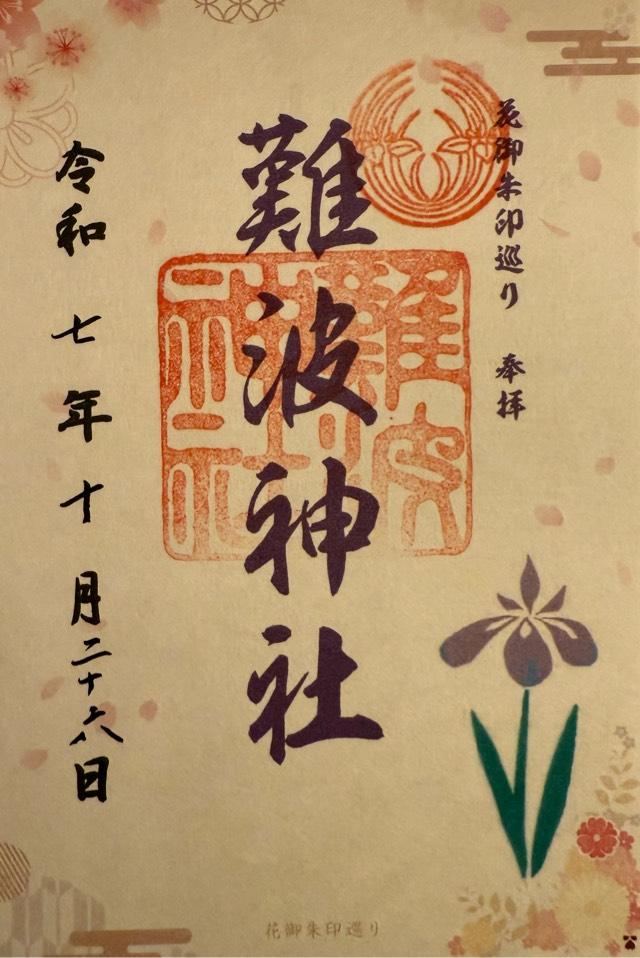 花御朱印巡り 奉拝
難波神社
令和七年十月二十六日
難波
神社
花御朱印巡り